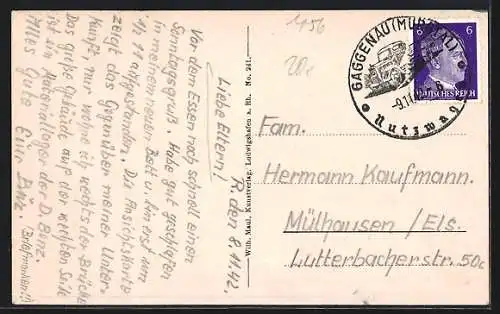 Liebe Eltern!   R. den 8.11.42.
Vor dem Essen noch schnell einen
Sonntagsgruß. Habe gut geschlafen
in meinem neuen Bett u. bin erst um
1/2 11 aufgestanden. Die Ansichtskarte
zeigt das Gegenüber meiner Unter-
kunft, nur wohne ich rechts der Brücke
Das große Gebäude auf der rechten Seite
ist ein Materiallager der D. Benz.
Alles Gute Euer
Briefmarken!!
Wilh. Maul, Kunstverlag, Ludwigshafen a. Rh. No. 241.
1956
GAGGENAU (MURGTAL)
-9.11.
Nutzwag
6 6
DEUTSCHES REICH
Fam.
Hermann Kaufmann.
Mülhausen / Els.
Lutterbacherstr. 50c